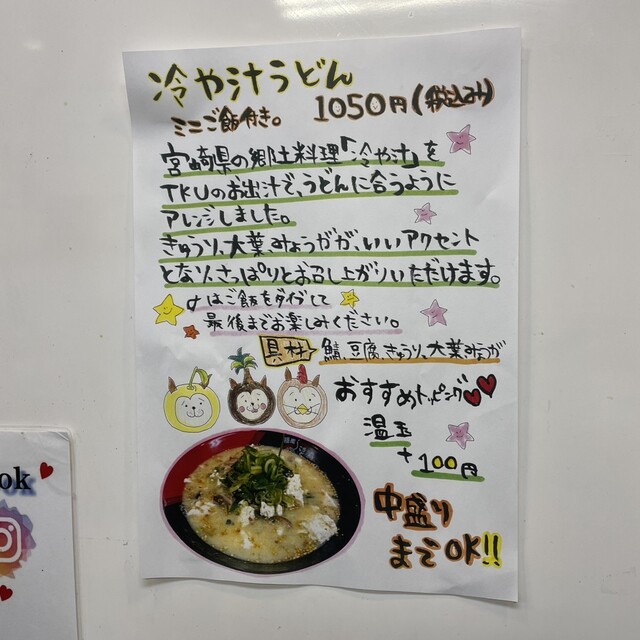 冷や汁うどん
ミニご飯付き。 1050円(税込み)
宮崎県の郷土料理「冷や汁」を
TKUのお出汁で、うどんに合うように
アレンジしました。
きゅうり、大葉、みょうがが、いいアクセント
となり、さっぱりとお召し上がりいただけます。
〆はご飯をダイブして
最後までお楽しみください。
具材 鯖、豆腐、きゅうり、大葉、みょうが
おすすめトッピング
温玉
+100円
中盛り
までOK!!
ok